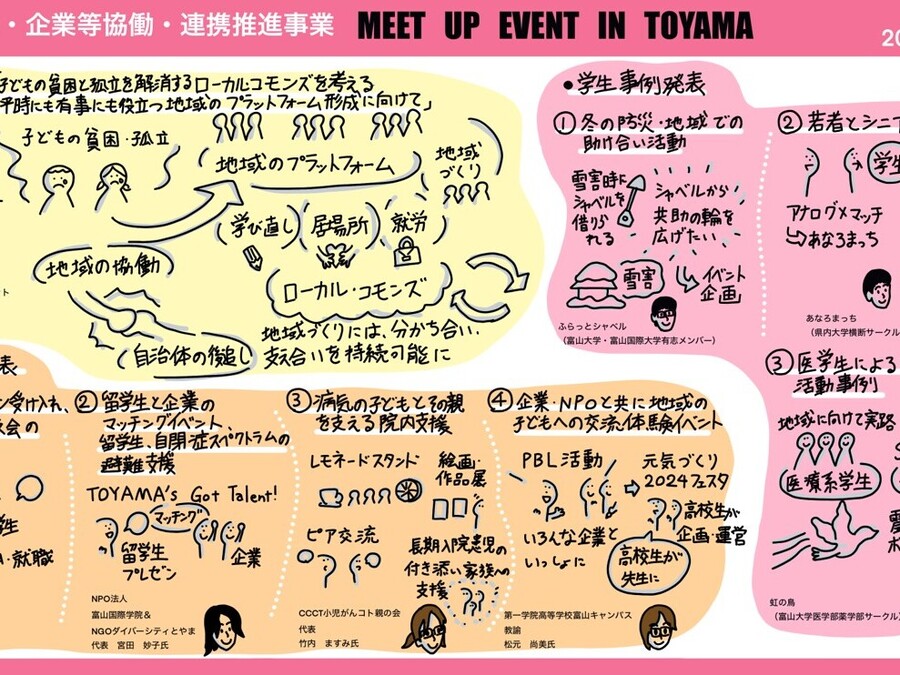 ・企業等協働・連携推進事業 MEET UP EVENT IN TOYAMA
20
子どもの貧困と孤立を解消するローカルコモンズを考える
平時にも有事にも役立つ地域のプラットフォーム形成に向けて」
子どもの貧困・孤立
地域のプラットフォーム
地域
づくり
学び直し
居場所
就労
地域の協働
ローカル・コモンズ
自治体の後追し
地域づくりには、分かち合い、
支え合いを持続可能に
ント
・学生事例発表
① 冬の防災・地域での
助け合い活動
雪害時に
シャベルを
借りら
れる
シャベルから
共助の輪を
広げたい
雪害
イベント
企画
ふらっとシャベル
（富山大学・富山国際大学有志メンバー）
② 若者とシニア
学生
アナログ×マッチ
あなろまっち
あなろまっち
（県内大学横断サークル）
③ 医学生による
活動事例
地域に向けて実践
医療系学生
虹の鳥
（富山大学医学部薬学部サークル）
表
受け入れ、
会の
学生
・就職
② 留学生と企業の
マッチングイベント、
留学生、自閉症スペクトラムの
避難支援
TOYAMA's Got Talent!
マッチング
留学生
プレゼン
企業
NPO法人
富山国際学院＆
NGOダイバーシティとやま
代表 宮田 妙子氏
③ 病気の子どもとその親
を支える院内支援
レモネードスタンド
絵画・
作品展
ピア交流
長期入院患児の
付き添い家族への
支援
CCCT小児がんコト親の会
代表
竹内 ますみ氏
④ 企業・NPOと共に地域の
子どもへの交流、体験イベント
PBL活動
元気づくり
2024フェスタ
いろんな企業と
いっしょに
高校生が
企画・運営
高校生が
先生に
第一学院高等学校富山キャンパス
教諭
松元 尚美氏